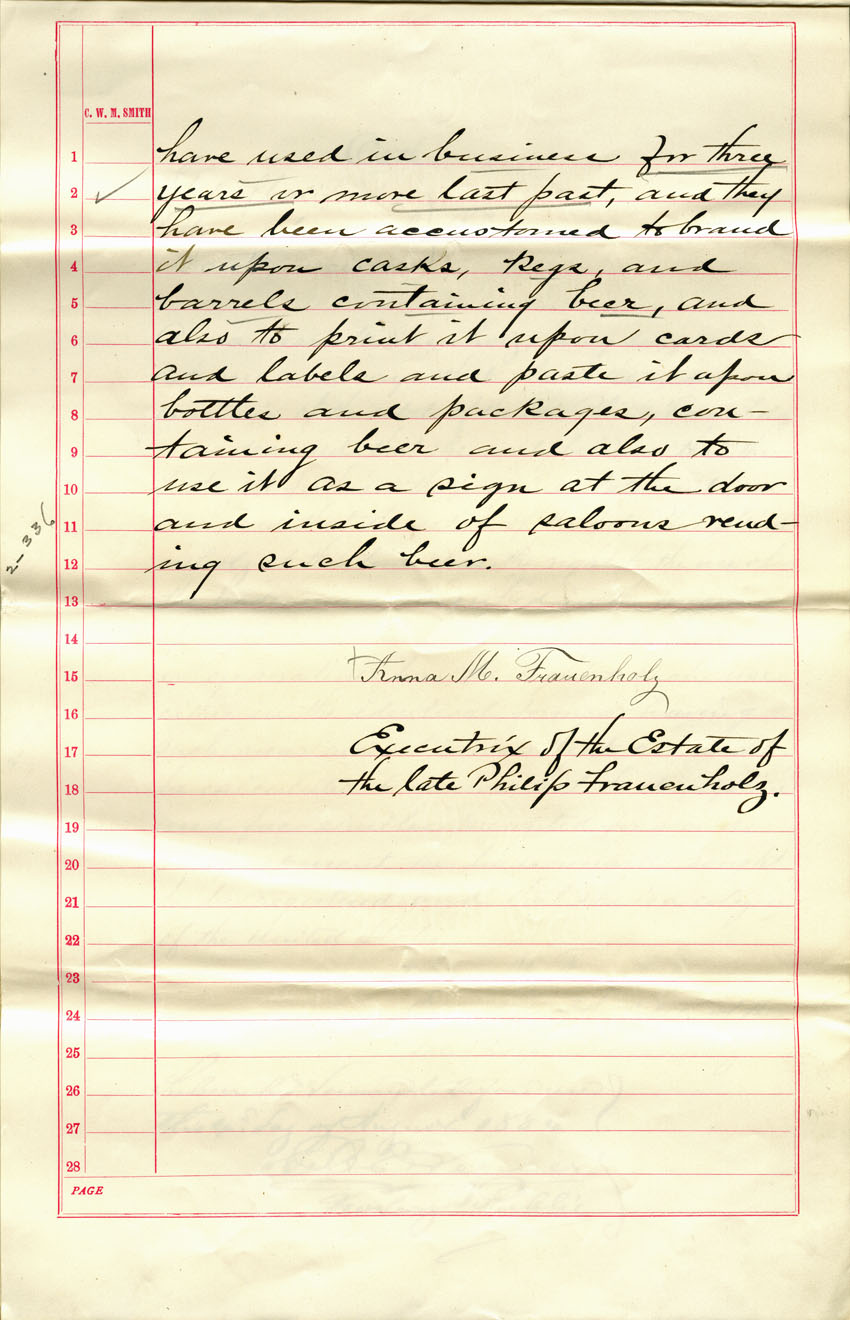 C. W. M. SMITH
1 have used in business for three
2 years or more last past, and they
3 have been accustomed to brand
4 it upon casks, kegs, and
5 barrels containing beer, and
6 also to print it upon cards
7 and labels and paste it upon
8 bottles and packages, con-
9 taining beer and also to
10 use it as a sign at the door
11 and inside of saloons vend-
12 ing such beer.
2-336
13
14
15 Anna M. Frauenholz
16
17 Executrix of the Estate of
18 the late Philip Frauenholz.
19
20
21
22
23
24
25
26
27
28
PAGE